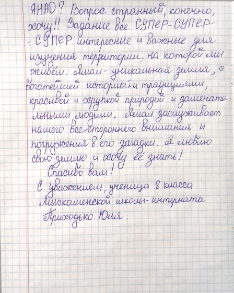 ЯНАО? Вопрос странный, конечно,
хочу!! Задание все СУПЕР-СУПЕР-
-СУПЕР интересные и важные для
изучения территории, на которой мы
живём. Ямал-уникальная земля, с
богатейшей историей и традициями,
красивой и хрупкой природой и замечате-
льными людьми. Ямал заслуживает
нашего всестороннего внимания и
погружения в его загадки. Я люблю
свою землю и хочу её знать!
Спасибо вам!
С уважением, ученица 8 класса
школы-интерната
Приходько Юлия.